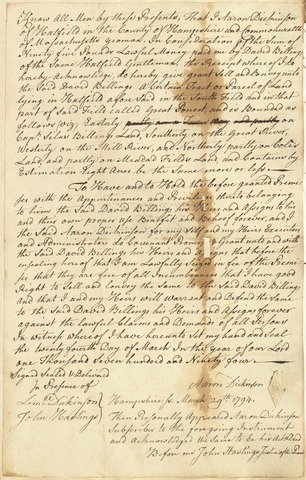 Know All Men by these Presents, That I Aaron Dickinson
of Hatfield in the County of Hampshire and Commonwealth
of Massachusetts yeoman In Consideration of the Sum of
Ninety five Pounds Lawful Money paid me by David Billings
of the Same Hatfield Gentleman, the Receipt whereof I do
hereby acknowledge, do hereby give grant Sell and Convey unto
the Said David Billings A Certain Tract or Parcel of Land
lying in Hatfield afore Said in the South Field and in that
part of Said Field Called Great Ponset, and is Bounded as
follows viz. Easterly partly on and partly on
Capt. Silas Billings Land, Southerly on the Great River,
Westerly on the Mill River, and Northerly partly on Coles
Land, and partly on Meadad Fields Land, and Contains by
Estimation Eight Acres be the Same more or less —
To Have and to Hold the before granted Premi-
ses with the Appurtenances and Privileges thereto belonging
to him the Said David Billings his Heirs and Assigns to his
and their own proper use Benefit and Behoof forever, and I
the Said Aaron Dickinson for my Self and my Heirs Executors
and Administrators do Covenant Promise Grant unto and with
the Said David Billings his Heirs and Assigns that before the
ensealing hereof that I am Lawfully Seized in fee of the Premi-
ses that they are free of all Incumbrances that I have good
Right to Sell and Convey the Same to the Said David Billings
And that I and my Heirs will warrant and Defend the Same
to the Said David Billings his Heirs and Assigns forever
against the lawful Claims and Demands of all Persons
In witness whereof I have hereunto Set my hand and Seal
the twenty fourth Day of March In the year of our Lord
one Thousand Seven hundred and Ninety four —
Signed Sealed & Delivered
In Presence of
Aaron Dickinson
Lemel. Dickinson
John Hastings
Hampshire Ss. March 29th. 1794.
Then Personally Appeared Aaron Dickinson
Subscriber to the foregoing Instrument
and Acknowledged the Same to be his Act & Deed
Before me John Hastings Justice of the Peace